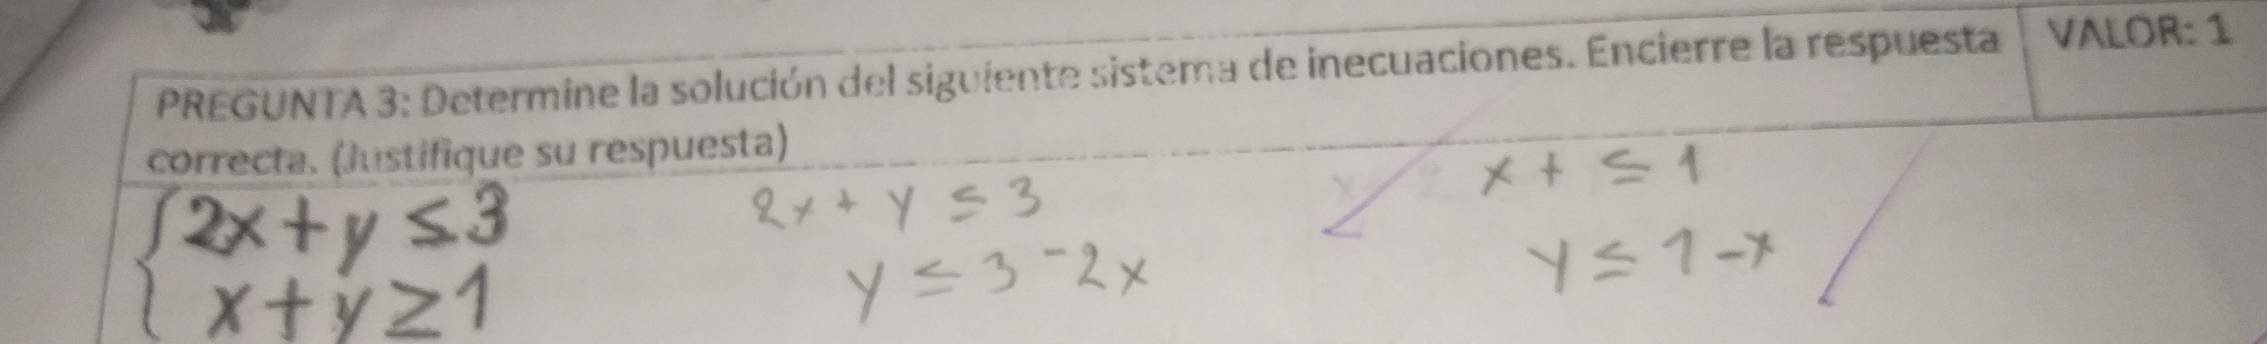 PREGUNTA 3: Determine la solución del siguiente sistema de inecuaciones. Encierre la respuesta
correcta. (Justifique su respuesta)
VALOR: 1
2x+y ≤3
x+y≥1
2x + y ≤ 3
y ≤ 3 -2x
x + ≤ 1
y ≤ 1 -x